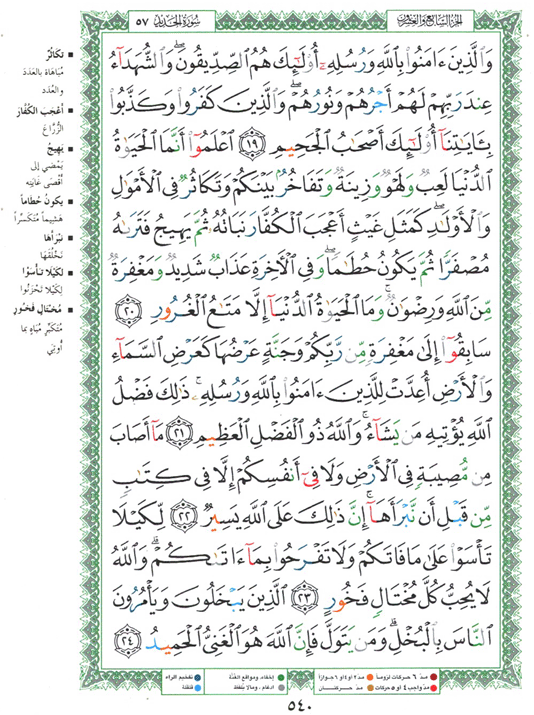 الجزء السابع والعشرون
سورة الحديد ٥٧
وَالَّذِينَ ءَامَنُوا بِاللَّهِ وَرُسُلِهِ أُولَٰئِكَ هُمُ الصِّدِّيقُونَ وَالشُّهَدَاءُ
عِندَ رَبِّهِمْ لَهُمْ أَجْرُهُمْ وَنُورُهُمْ وَالَّذِينَ كَفَرُوا وَكَذَّبُوا
بِـَٔايَٰتِنَا أُولَٰئِكَ أَصْحَٰبُ الْجَحِيمِ ١٩ اعْلَمُوا أَنَّمَا الْحَيَوٰةُ
الدُّنْيَا لَعِبٌ وَلَهْوٌ وَزِينَةٌ وَتَفَاخُرٌ بَيْنَكُمْ وَتَكَاثُرٌ فِي الْأَمْوَٰلِ
وَالْأَوْلَٰدِ كَمَثَلِ غَيْثٍ أَعْجَبَ الْكُفَّارَ نَبَاتُهُ ثُمَّ يَهِيجُ فَتَرَىٰهُ
مُصْفَرًّا ثُمَّ يَكُونُ حُطَٰمًا وَفِي الْءَاخِرَةِ عَذَابٌ شَدِيدٌ وَمَغْفِرَةٌ
مِّنَ اللَّهِ وَرِضْوَٰنٌ وَمَا الْحَيَوٰةُ الدُّنْيَا إِلَّا مَتَٰعُ الْغُرُورِ ٢٠
سَابِقُوا إِلَىٰ مَغْفِرَةٍ مِّن رَّبِّكُمْ وَجَنَّةٍ عَرْضُهَا كَعَرْضِ السَّمَاءِ
وَالْأَرْضِ أُعِدَّتْ لِلَّذِينَ ءَامَنُوا بِاللَّهِ وَرُسُلِهِ ذَٰلِكَ فَضْلُ
اللَّهِ يُؤْتِيهِ مَن يَشَاءُ وَاللَّهُ ذُو الْفَضْلِ الْعَظِيمِ ٢١ مَا أَصَابَ
مِن مُّصِيبَةٍ فِي الْأَرْضِ وَلَا فِي أَنفُسِكُمْ إِلَّا فِي كِتَٰبٍ
مِّن قَبْلِ أَن نَّبْرَأَهَا إِنَّ ذَٰلِكَ عَلَى اللَّهِ يَسِيرٌ ٢٢ لِّكَيْلَا
تَأْسَوْا عَلَىٰ مَا فَاتَكُمْ وَلَا تَفْرَحُوا بِمَا ءَاتَىٰكُمْ وَاللَّهُ
لَا يُحِبُّ كُلَّ مُخْتَالٍ فَخُورٍ ٢٣ الَّذِينَ يَبْخَلُونَ وَيَأْمُرُونَ
النَّاسَ بِالْبُخْلِ وَمَن يَتَوَلَّ فَإِنَّ اللَّهَ هُوَ الْغَنِيُّ الْحَمِيدُ ٢٤
تَكَاثُرٌ
مُبَاهَاةٌ بِالعَدَد
والعُدَد
أَعْجَبَ الكُفَّارَ
الزُّرَّاعَ
يَهِيجُ
يَمْضِي إلى
أقْصَى غَايَتِه
يَكُونُ حُطَاماً
هَشِيماً مُتَكَسِّراً
نَبْرَأَهَا
نَخْلُقَهَا
لِكَيْلَا تَأْسَوْا
لِكَيْلَا تَحْزَنُوا
مُخْتَالٍ فَخُورٍ
مُتَكَبِّرٍ مُبَاهٍ بِمَا
أُوتِيَ
مدّ ٦ حركات لزوماً
مدّ ٢ او ٤ او ٦ جوازاً
إخفاء، ومواقع الغُنَّة
تفخيم الراء
مدّ واجب ٤ أو ٥ حركات
مدّ حركتــان
ادغام، ومالا يُلفَظ
قلقلة
٥٤٠